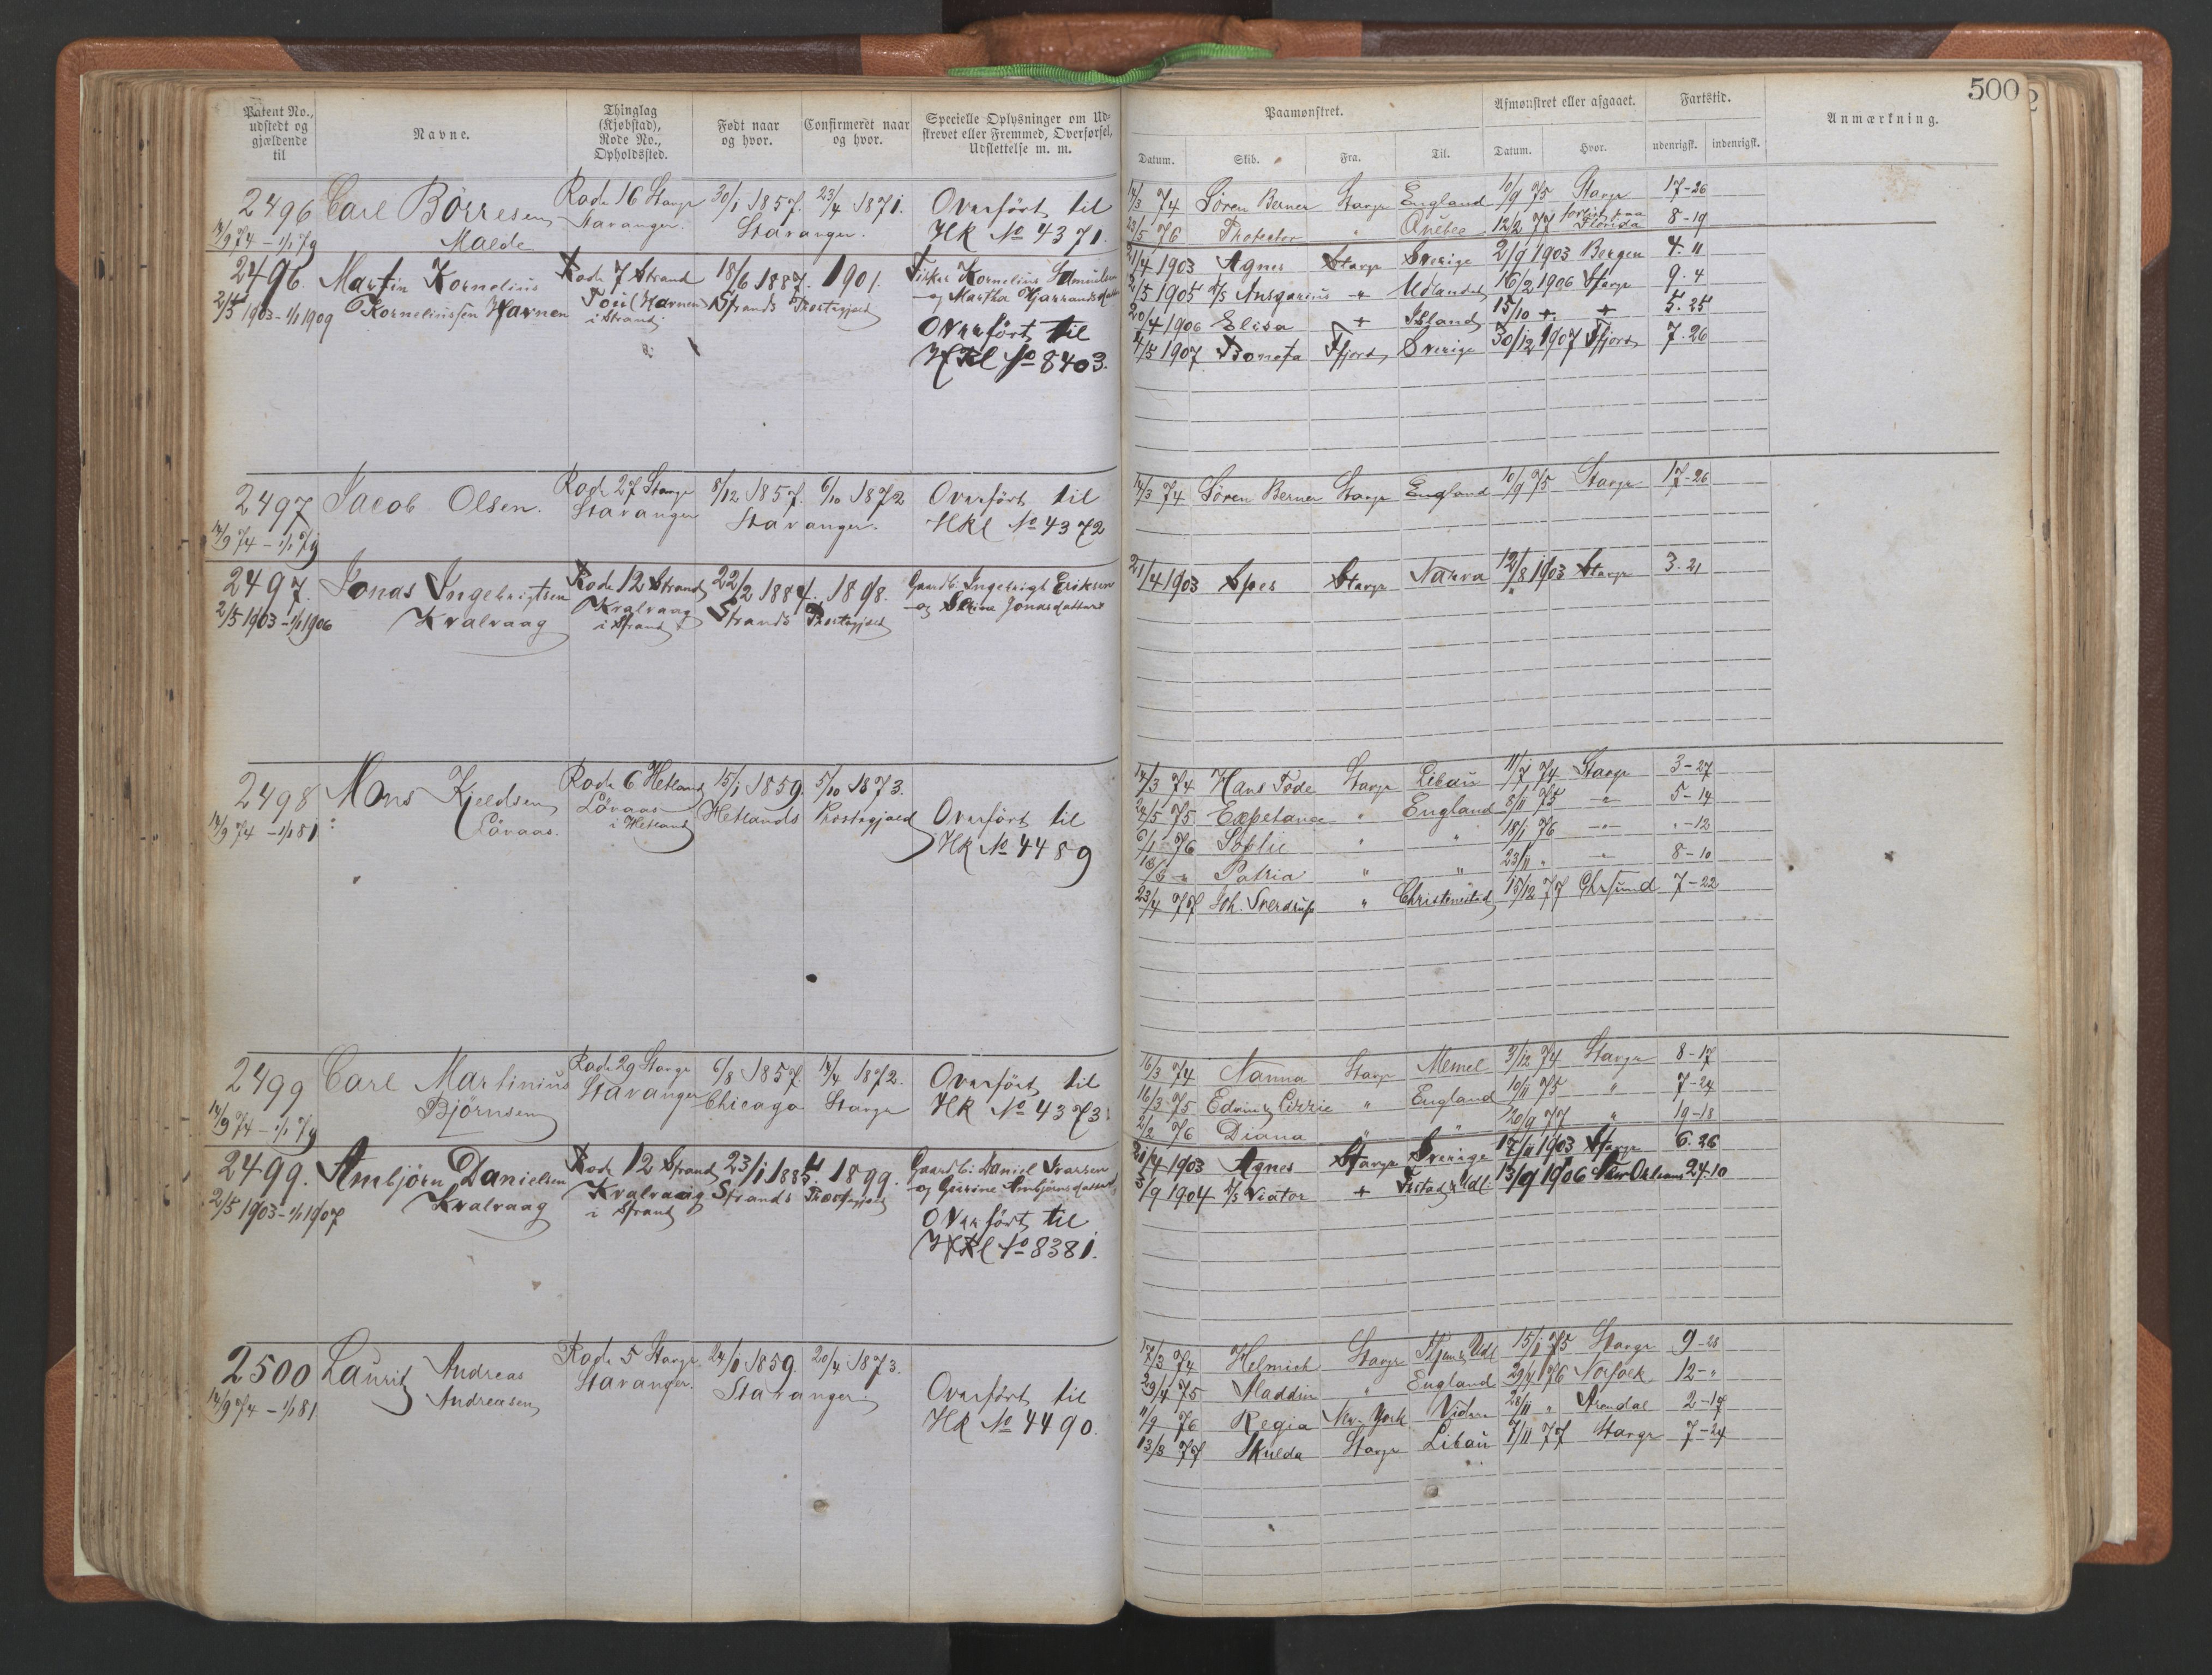 500
Patent No., udstedt og gjældende til
Navne.
Thinglag (Kjøbstad), Rode No., Opholdssted.
Født naar og hvor.
Confirmeret naar og hvor.
Specielle Oplysninger om Udskrevet eller Fremmed, Overførsel, Udslettelse m. m.
Paamønstret.
Afmønstret eller afgaaet.
Fartstid.
Anmærkning.
Datum. Skib. Fra. Til. Datum. Hvor. udenrigsk. indenrigsk.
2496 Carl Börresen Rode 16 Stavgr 30/1 1857. 23/4 1871. Overfört til
14/3 74 Sören Berner Stavgr England 10/9 75 Stavgr 17-26
14/9 74 - 1/1 79 Malde Stavanger. Stavanger. HR No 4371.
23/5 76 Protector " Quebec 12/2 77 forlist paa Florida 8-19
2496. Martin Kornelius Rode 7 Strand 18/6 1887. 1901. Fisker Kornelius Samuelsen
21/4 1903 Agnes Stavgr Sverige 2/9 1903 Bergen 4. 11
2/5 1903 - 1/1 1909 Korneliussen Havnen Tou (Havnen) i Strand Strands Præstegjæld og Martha
2/5 1905 S/S Ansgarius " Udlandet 16/2 1906 Stavgr 9. 4
Overfört til
20/4 1906 Elisa + Island 15/10 + + 5. 25
HRl No 8403.
4/5 1907 Bonefa Ffjord Sverige 30/12 1907 Ffjord 7. 26
2497 Jacob Olsen. Rode 27 Stavgr 8/12 1857. 6/10 1872 Overfört til
14/3 74 Sören Berner Stavgr England 10/9 75 Stavgr 17-26
14/9 74 - 1/1 79 Stavanger Stavanger. HRl No 4372
2497. Jonas Ingebrigtsen Rode 12 Strand 22/2 1884. 1898. Gaardbr. Ingebrigt Eriksen
21/4 1903 Spes Stavgr Narva 12/8 1903 Stavgr 3. 21
2/5 1903 - 1/1 1906 Kvalvaag Kvalvaag i Strand Strands Præstegjæld og Serine Jonasdatter
2498 Mons Kjeldsen Rode 6 Hetland 15/1 1859. 5/10 1873.
14/3 74 Hans Tode Stavgr Libau 11/7 74 Stavgr 3-27
14/9 74 - 1/1 81 Lövaas. Lövaas i Hetland Hetlands Præstegjæld Overfört til
24/5 75 Expetance " England 8/11 75 " 5-14
HR No 4489
6/1 76 Sophie " " 18/1 76 " "-12
18/3 " Patria " " 23/11 " " 8-10
23/4 77 Joh. Sverdrup " Christinestad 15/12 77 Chrsund 7-22
2499 Carl Martinius Rode 29 Stavgr 6/8 1857. 14/4 1872. Overfört til
16/3 74 Nanna Stavgr Memel 3/12 74 Stavgr 8-17
14/9 74 - 1/1 79 Björnsen Stavanger Chicago Stavgr HR No 4373.
16/3 75 Edvin & Lizzie " England 10/11 75 " 7-24
2/2 76 Diana " " 20/9 77 " 19-18
2499. Arnbjörn Danielsen Rode 12 Strand 23/1 1885. 1899. Gaardbr. Daniel Ivarsen
21/4 1903 Agnes Stavgr Sverige 17/11 1903 Stavgr 6. 26
2/5 1903 - 1/1 1907 Kvalvaag Kvalvaag i Strand Strands Præstegjæld og Gurine Arnbjörnsdatter
3/9 1904 S/S Viator + Fstad & Udl. 13/9 1906 New Orleans 24. 10
Overfört til
HRl No 8381.
2500 Lauritz Andreas Rode 5 Stavgr. 24/1 1859. 20/4 1873.
17/3 74 Helmich Stavgr & Udl 15/1 75 Stavgr 9-28
14/9 74 - 1/1 81 Andreasen Stavanger. Stavanger. Overfört til
29/4 75 Aladdin " England 29/4 76 Norfolk 12-"
HR No 4490.
11/9 76 Regia New-York Vidre 28/11 " Arendal 2-17
13/3 77 Skulda Stavgr Libau 7/11 77 Stavgr 7-24